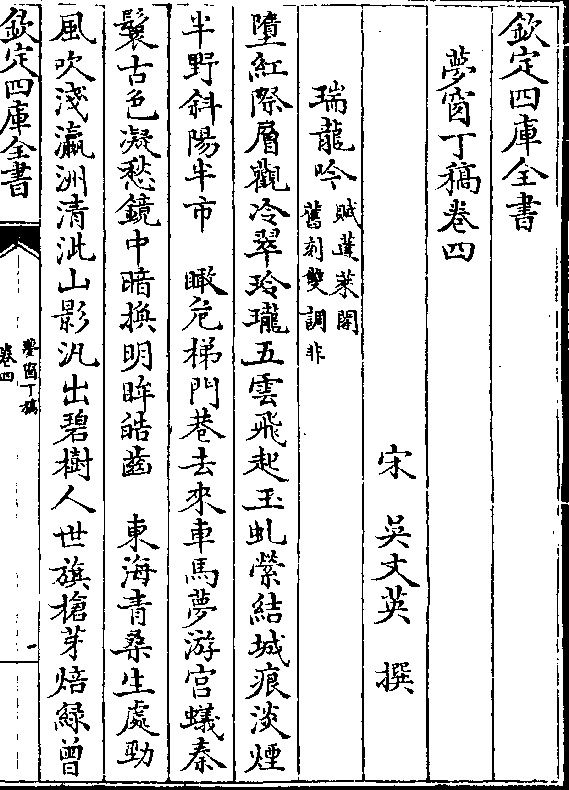 欽定四庫全書
夢窗丁稿卷四
宋 吳文英 撰
瑞龍吟賦蓬萊閣
舊刻雙調非
墮紅際層觀冷翠玲瓏五雲飛起玉虬縈結城痕淡煙
半野斜陽半市 瞰危梯門巷去來車馬夢游宫蟻秦
鬟古色凝愁鏡中暗換明眸皓齒 東海青桑生處勁
風吹淺瀛洲清泚山影汎出碧樹人世旗槍芽焙綠曾
欽定四庫全書
夢窗丁稿
卷四
一